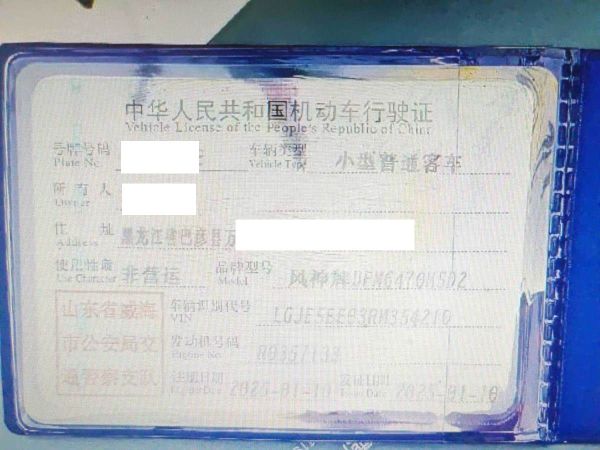 中华人民共和国机动车行驶证
Vehicle License of the People's Republic of China
号牌号码 车辆类型 小型普通客车
Plate No. Vehicle Type
所有人
Owner
住 址 黑龙江省巴彦县万
Address
使用性质 非营运 品牌型号 风神牌DFM6470M5D2
Use Character Model
山东省威海 车辆识别代号 LGJE5EE03RM354210
VIN
市公安局交 发动机号码
Engine No.
通警察支队 注册日期 2025-01-10 发证日期 2025-01-10
Register Date Issue Date